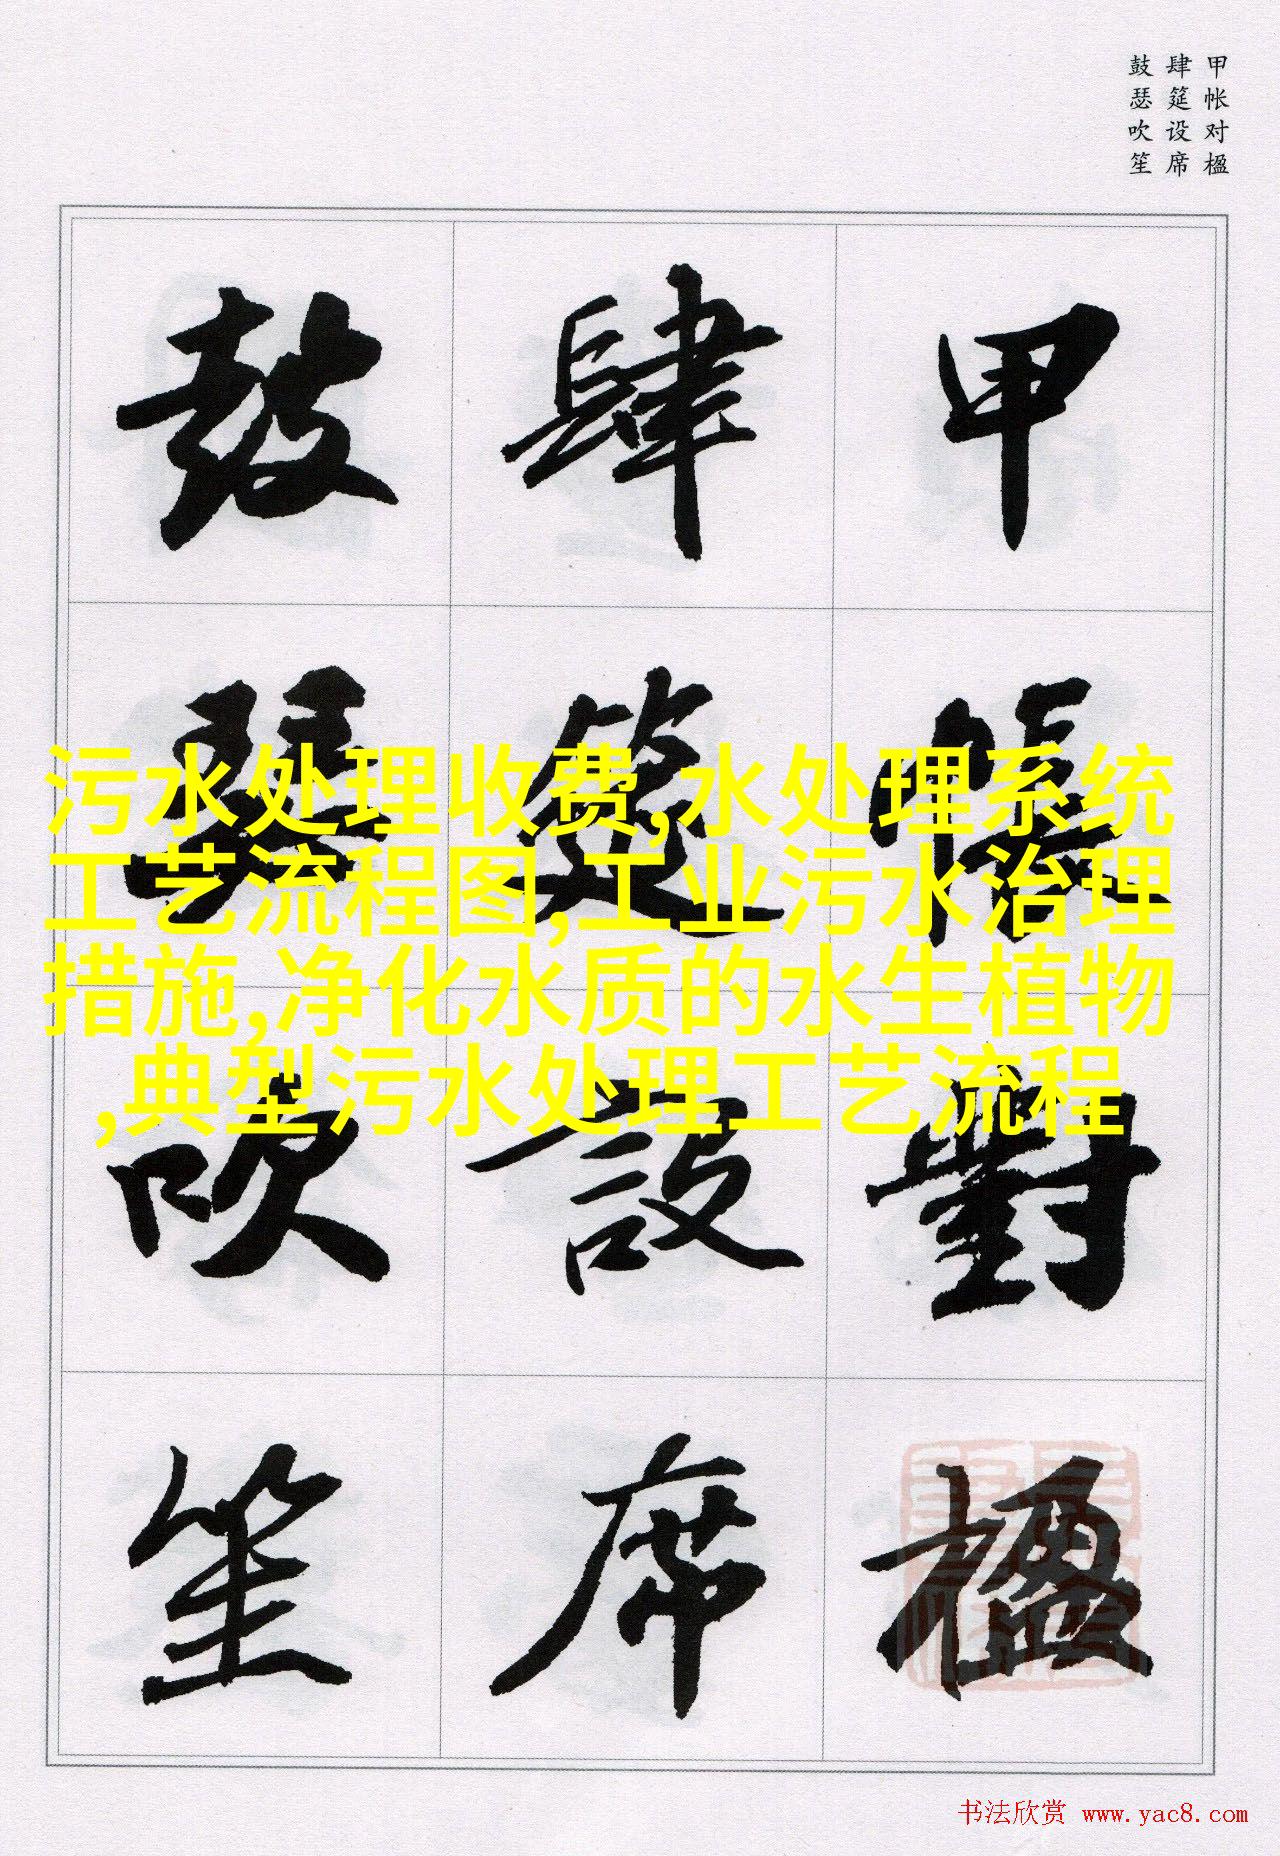 甲帐对楹
肆筵设席
鼓瑟吹笙
甲帳對楹
肆筵設席
鼓瑟吹笙
污水处理收费,水处理系统
工艺流程图,工业污水治理
措施,净化水质的水生植物
,典型污水处理工艺流程
书法欣赏 www.yac8.com